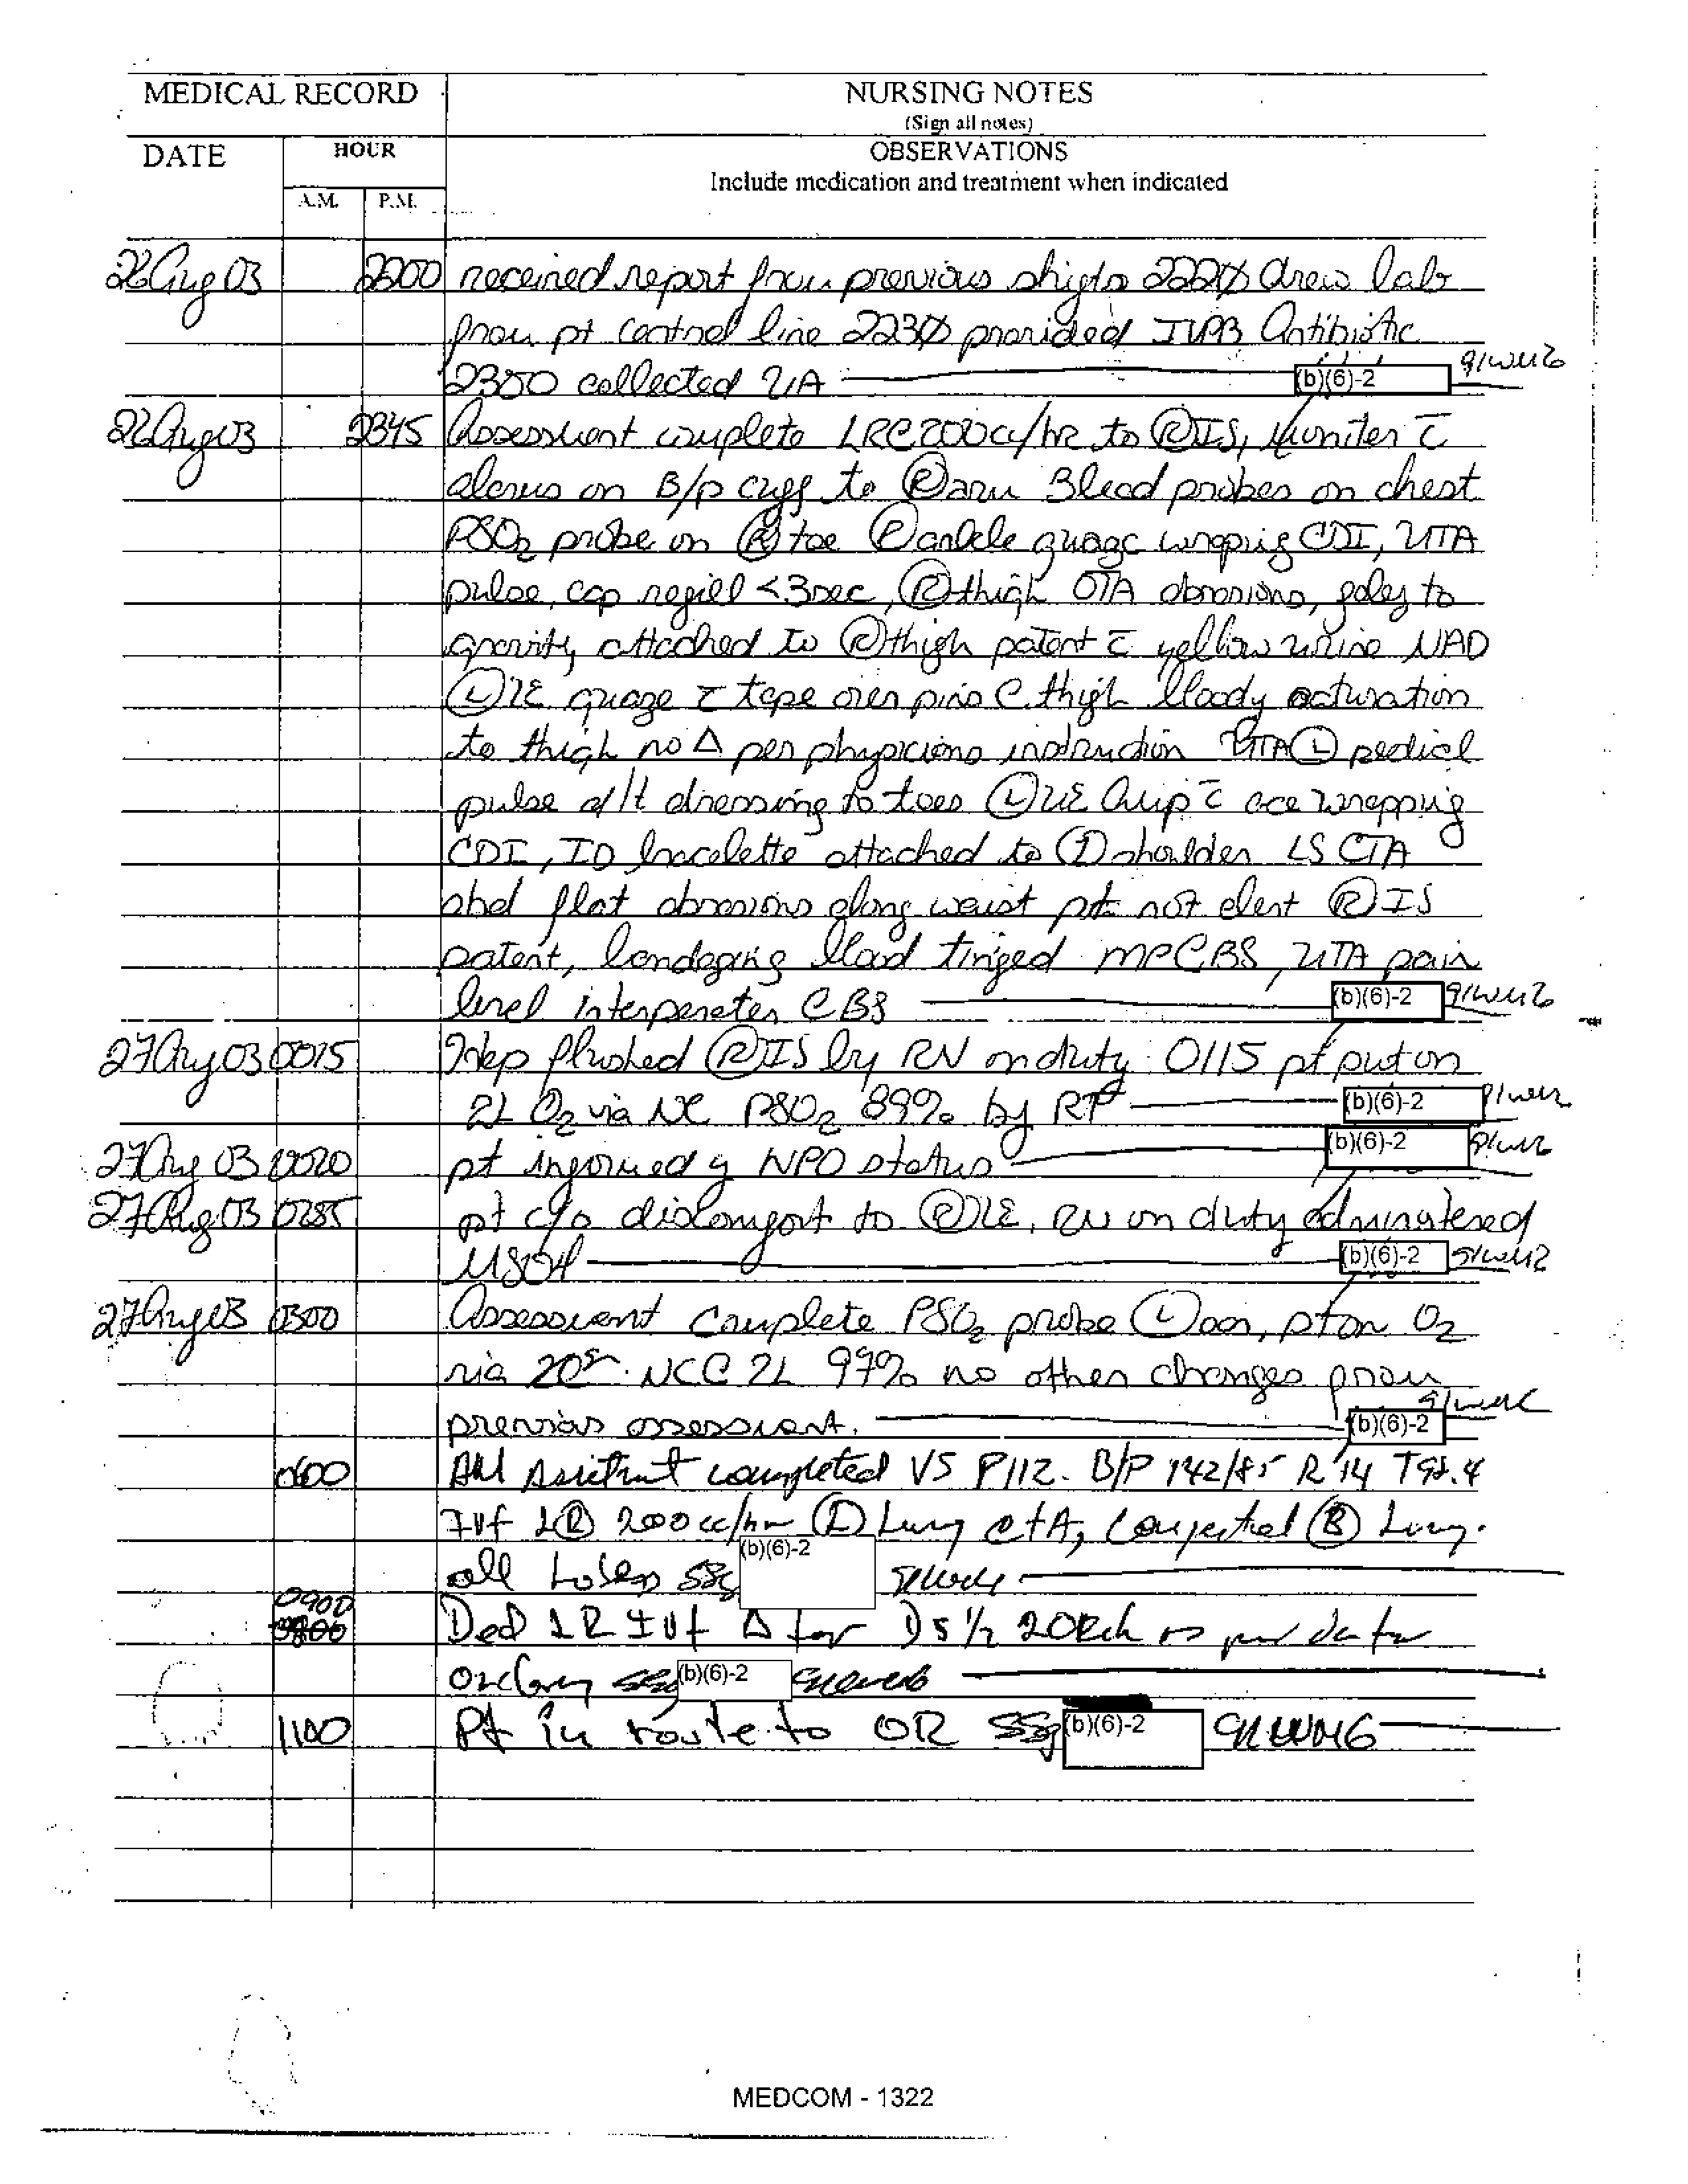 MEDICAL RECORD
NURSING NOTES
(Sign all notes)
DATE
HOUR
OBSERVATIONS
Include medication and treatment when indicated
A.M. P.M.
26Aug03 2200 received report from previous shift 2220 drew lab
from pt central line 2230 provided IVPB Antibiotic
2300 collected UA (b)(6)-2 91WM6
26Aug03 2345 Assessment complete LR@200cc/hr to (R)IS, Moniter c̄
alarms on B/p cuff to (R)arm 3 lead probes on chest
PSO2 probe on (R) toe (R)ankle guaze wrapping CDI, UTA
pulse, cap refill <3sec, (R)thigh OTA abrasions, foley to
gravity attached to (R)thigh patent c̄ yellow urine NAD
(L)LE guaze c̄ tape over pins @ thigh bloody saturation
to thigh no Δ per physicians instruction UTA (L) pedial
pulse d/t dressing to toes (L)UE c̄ ace wrapping
CDI, ID bracelette attached to (L) shoulder LS CTA
abd flat abrasions along waist pt not alert (R)IS
patent, bandaging blood tinged MP@BS, UTA pain
level interpereter @BS (b)(6)-2 91WM6
27Aug03 0015 Hep flushed (R)IS by RN on duty 0115 pt put on
2L O2 via NC PSO2 89% by RT (b)(6)-2
27Aug03 pt informed of NPO status (b)(6)-2
27Aug03 pt c/o discomfort to LE, RN on duty administered
MSO4 (b)(6)-2
27Aug03 0300 Assessment complete PSO2 probe (L) ear, pt on O2
via NC @ 2L 97% no other changes from
previous assessment. (b)(6)-2
0600 AM completed VS P112 B/P 142/85 R 14 T98.4
IVF LR 200cc/hr (L) Lung CTA, (R) Lung.
all Lobes SSG (b)(6)-2
0900 LR IVF Δ for D5 1/2 20Kcl as per
SSG (b)(6)-2
1100 Pt in route to OR SSg (b)(6)-2 91WM6
MEDCOM - 1322